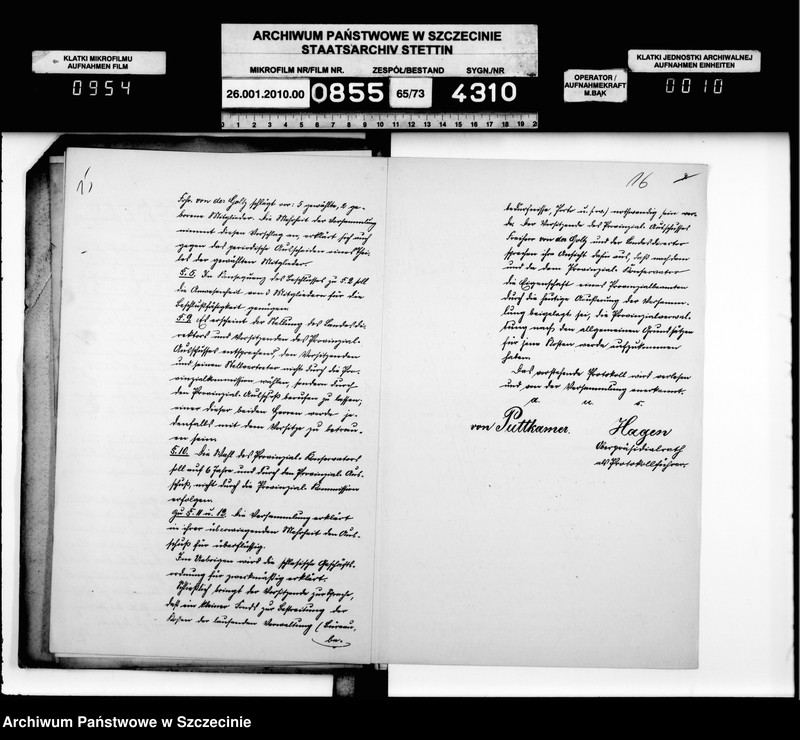 ARCHIWUM PAŃSTWOWE W SZCZECINIE
STAATSARCHIV STETTIN
MIKROFILM NR/FILM NR. ZESPÓŁ/BESTAND SYGN./NR
26.001.2010.00 0855 65/73 4310
KLATKI MIKROFILMU
AUFNAHMEN FILM
0954
OPERATOR /
AUFNAHMEKRAFT
M.BĄK
KLATKI JEDNOSTKI ARCHIWALNEJ
AUFNAHMEN EINHEITEN
0010
Frhr. von der Goltz schlägt vor: 5 gewählte, 2 ge-
borene Mitglieder. Die Mehrheit der Versammlung
nimmt diesen Vorschlag an, erklärt sich auch
gegen das periodische Ausscheiden eines Thei-
les der gewählten Mitglieder.
§. 5. In Konsequenz des Beschlusses zu §. 2 soll
die Anwesenheit von 3 Mitgliedern für die
Beschlußfähigkeit genügen.
§. 9. Es erscheint der Stellung des Landesdi-
rektors und Vorsitzenden des Provinzial-
Ausschusses entsprechend, den Vorsitzenden
und seinen Stellvertreter nicht durch die Pro-
vinzialkommission wählen, sondern durch
den Provinzial-Ausschuß berufen zu lassen;
einer dieser beiden Herren werde je-
denfalls mit dem Vorsitze zu betrau-
en sein.
§. 10. Die Wahl des Provinzial-Konservators
soll auf 6 Jahre und durch den Provinzial-Aus-
schuß, nicht durch die Provinzial-Kommission
erfolgen.
Zu §. 11 u. 12. Die Versammlung erklärt
in ihrer überwiegenden Mehrheit den Aus-
schuß für überflüssig.
Im Uebrigen wird die schlesische Geschäfts-
ordnung für zweckmäßig erklärt.
Schließlich bringt der Vorsitzende zur Sprache,
daß ein kleiner Fonds zur Bestreitung der
Kosten der laufenden Verwaltung (Büreau-
be-
16
bedürfnisse, Porto u.s.w.) nothwendig sein wer-
de. Der Vorsitzende des Provinzial-Ausschusses
Freiherr von der Goltz und der Landesdirektor
sprechen ihre Ansicht dahin aus, daß nachdem
und da dem Provinzial-Konservator
die Eigenschaft eines Provinzialbeamten
durch die heutige Äußerung der Versamm-
lung beigelegt sei, die Provinzialverwal-
tung nach den allgemeinen Grundsätzen
für jene Kosten werde aufzukommen
haben.
Das vorstehende Protokoll wird verlesen
und von der Versammlung anerkannt.
a. u. s.
von Puttkamer. Hagen
Oberpräsidialrath
als Protokollführer
Archiwum Państwowe w Szczecinie